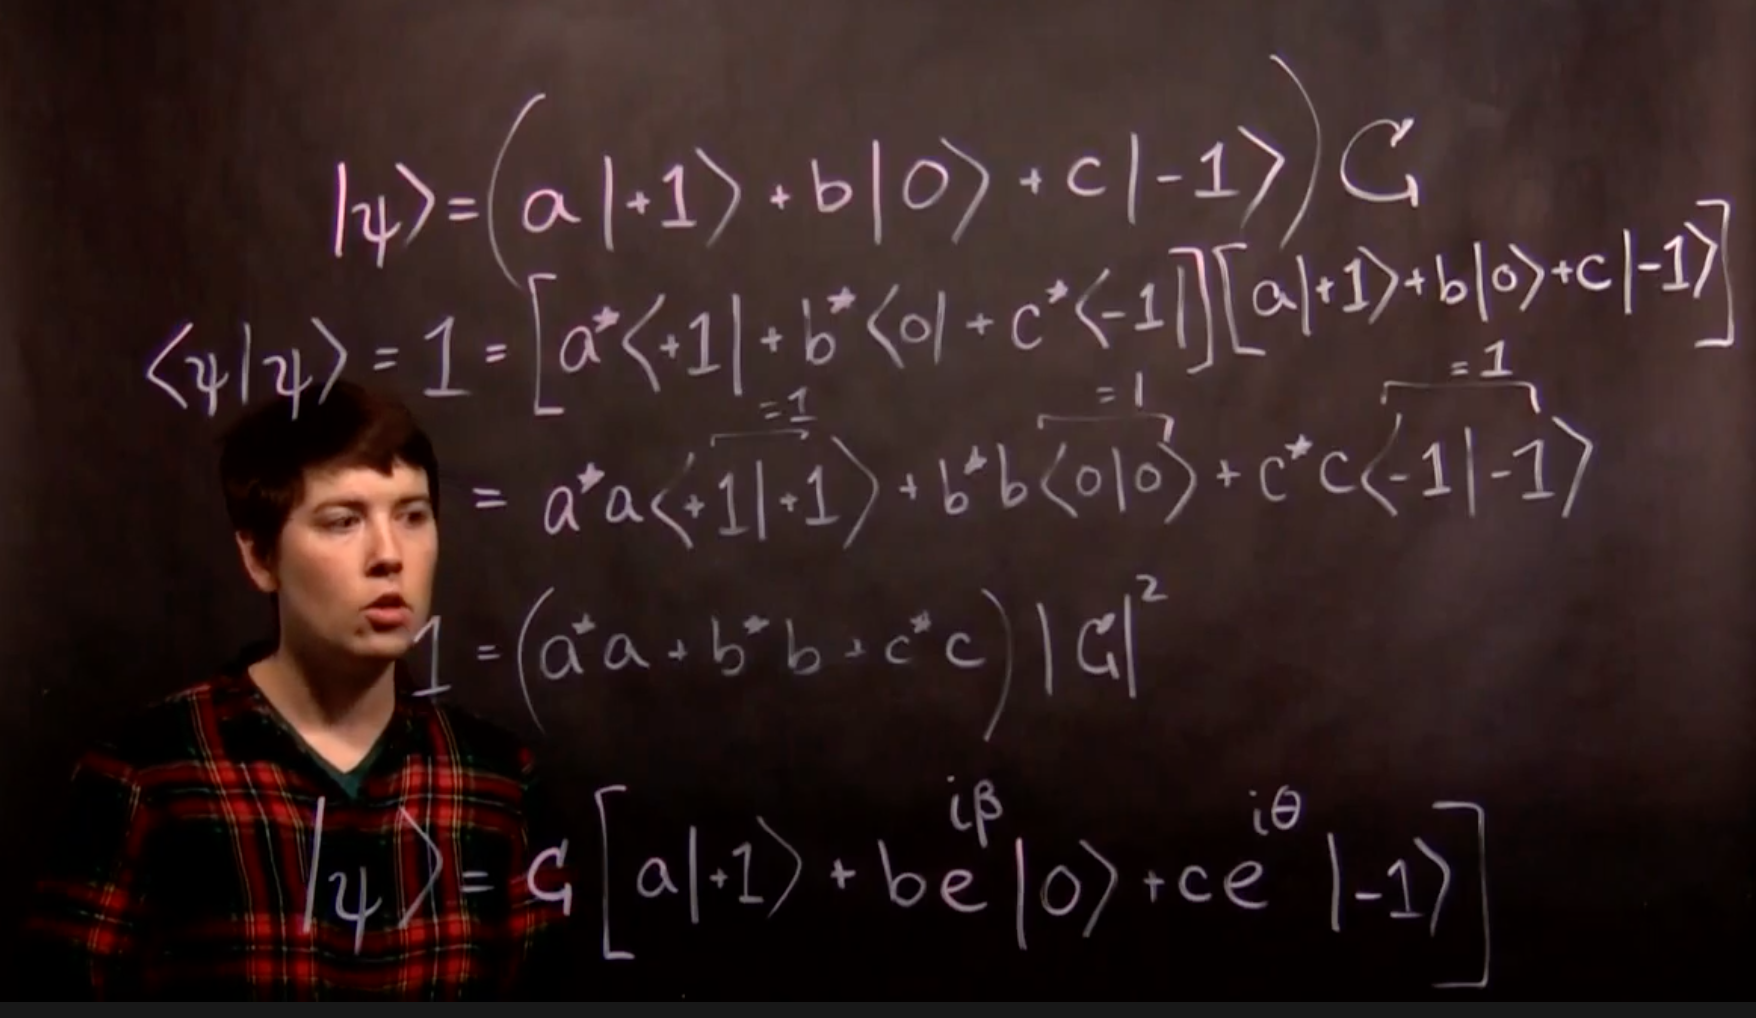 |ψ⟩ = (a|+1⟩ + b|0⟩ + c|-1⟩) G
⟨ψ|ψ⟩ = 1 = [a*⟨+1| + b*⟨0| + c*⟨-1|][a|+1⟩ + b|0⟩ + c|-1⟩]
=1 =1 =1
= a*a⟨+1|+1⟩ + b*b⟨0|0⟩ + c*c⟨-1|-1⟩
1 = (a*a + b*b + c*c) |G|²
|ψ⟩ = G [a|+1⟩ + be^{iβ}|0⟩ + ce^{iθ}|-1⟩]